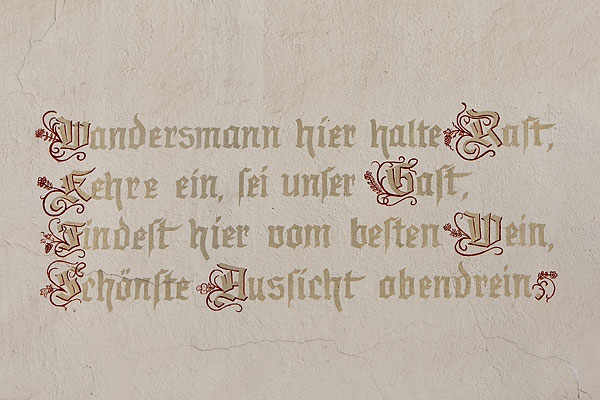 Wandersmann hier halte Rast,
Kehre ein, sei unser Gast,
Findest hier vom besten Wein,
Schönste Aussicht obendrein.